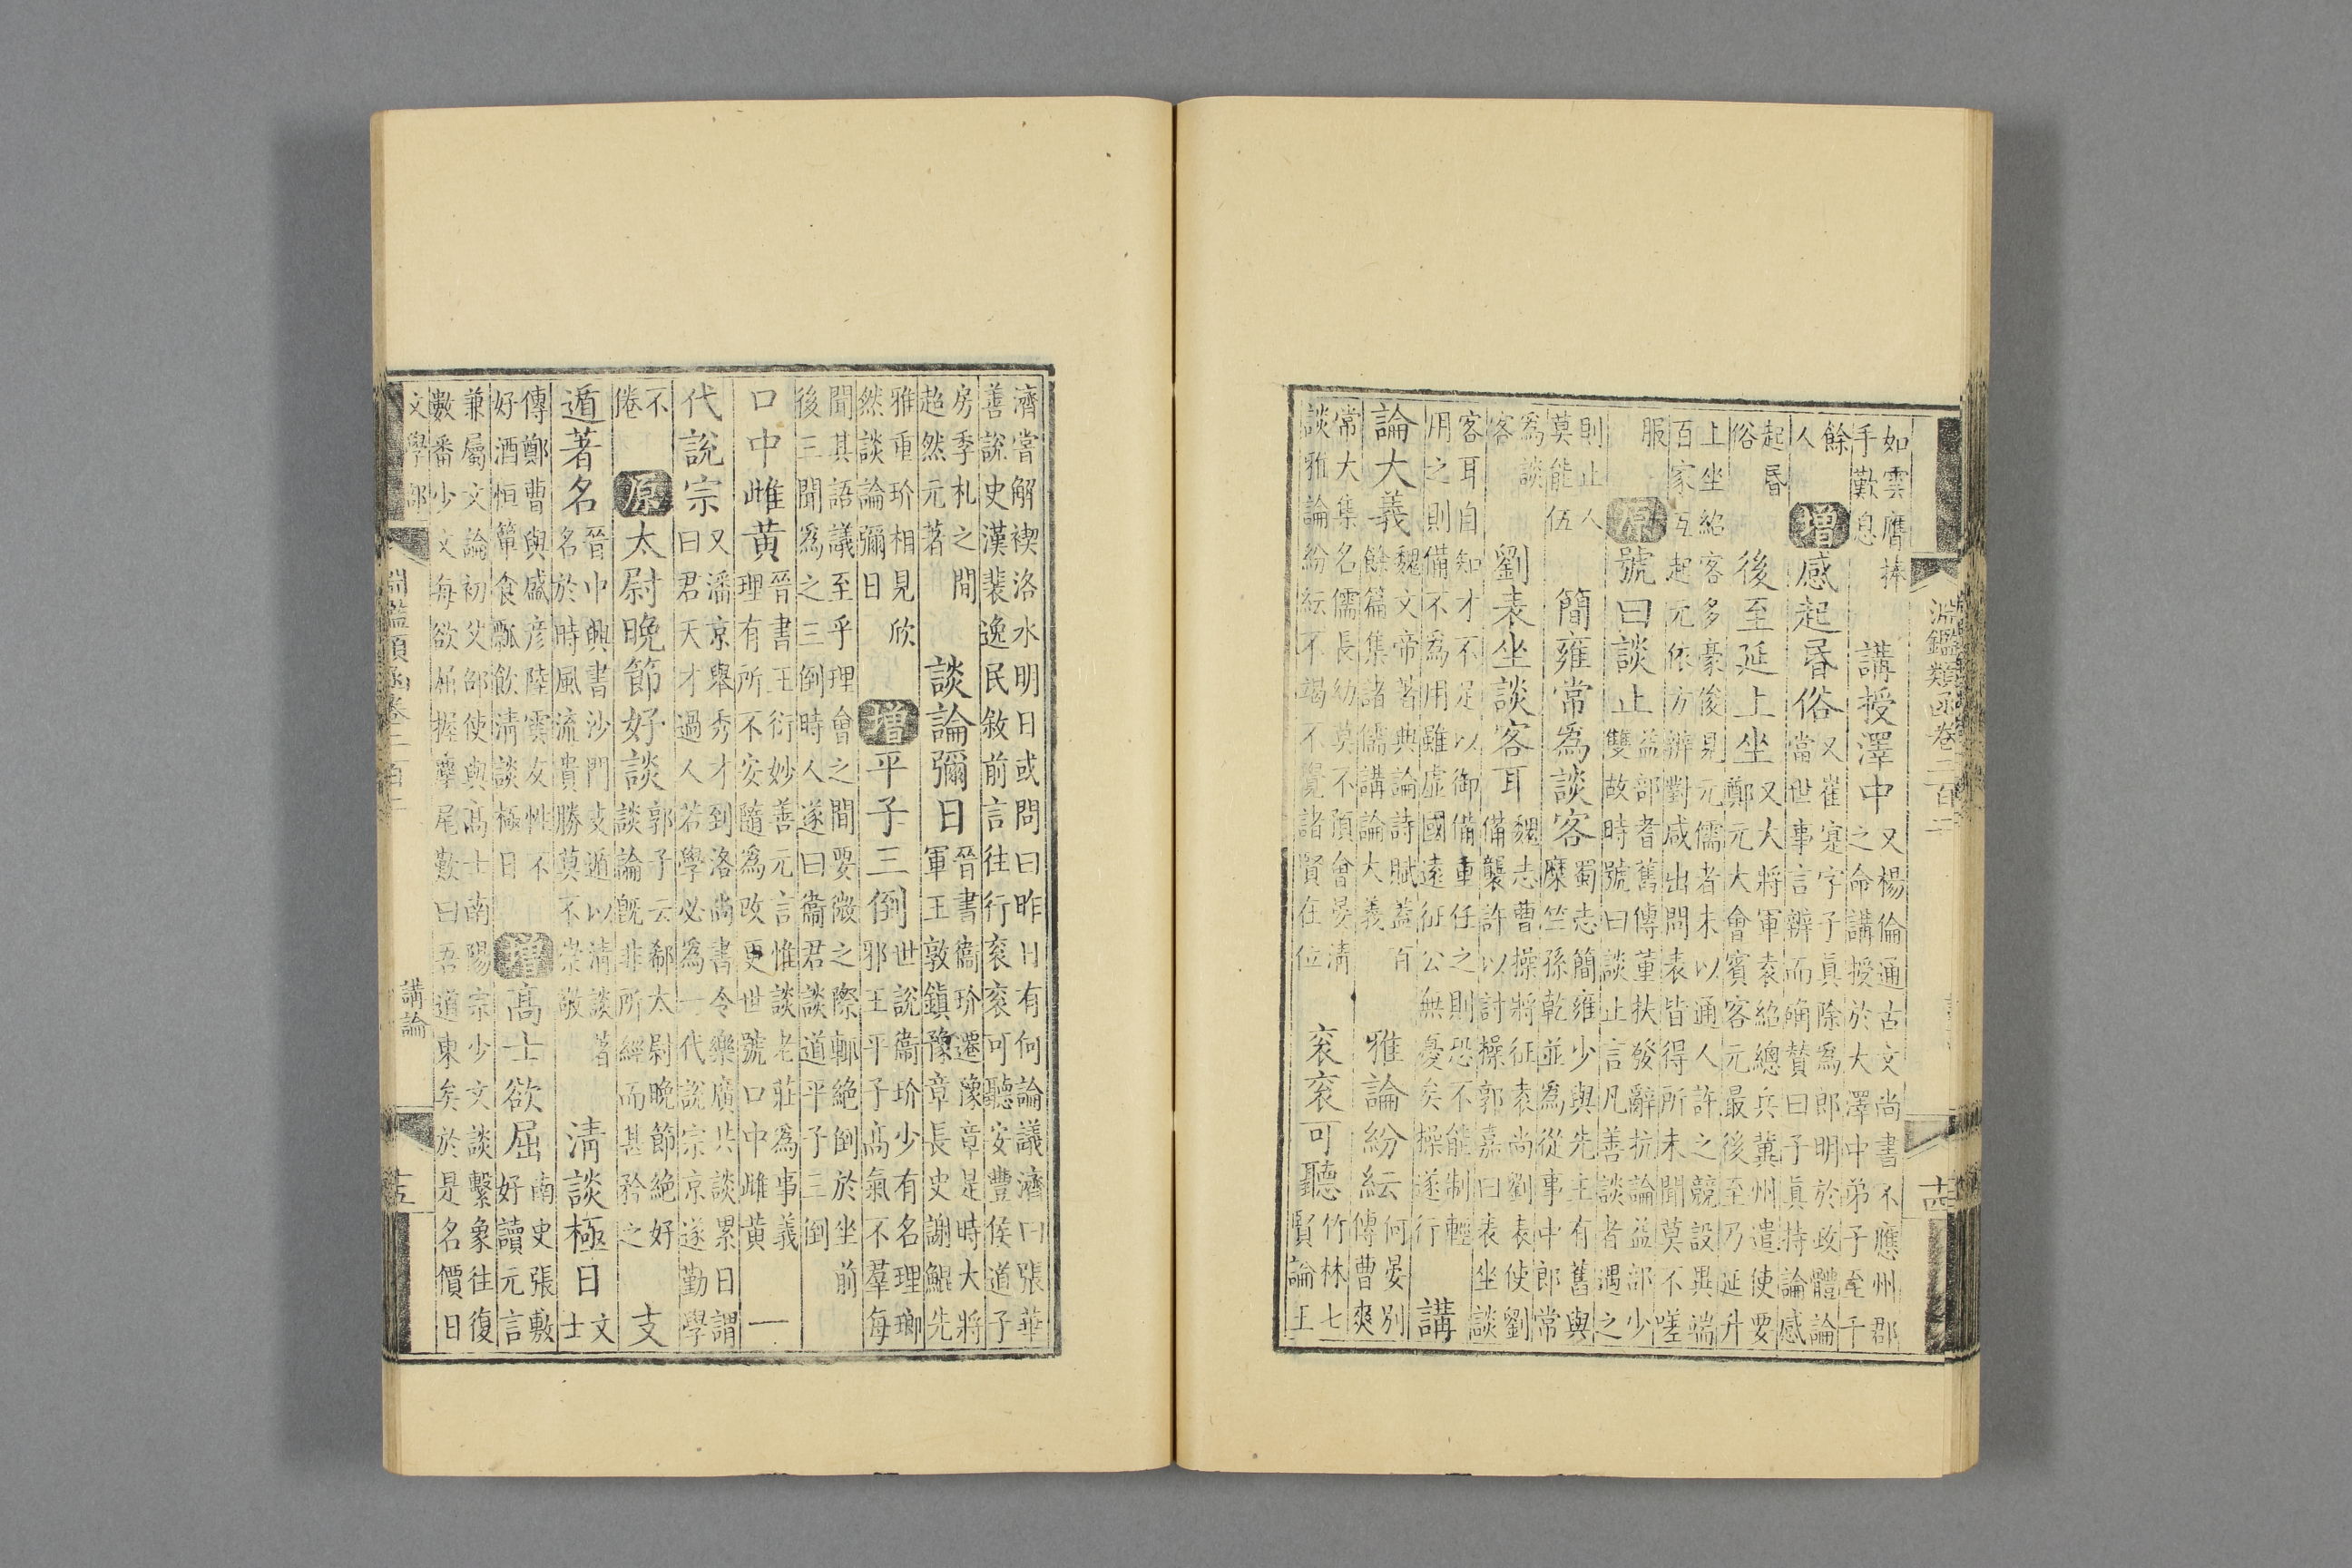 淵鑑類函卷二百二
十四
如雲膺捧
手歎息
講授澤中
又楊倫通古文尚書不應州郡
之命講授於大澤中弟子至千
餘
人
增
感起昬俗
又崔寔字子真除為郎明於政體論
當世事言辨而确贊曰子真持論感
起昬
俗
後至延上坐
又大將軍袁紹總兵冀州遣使要
鄭元大會賓客元最後至乃延升
上坐紹客多豪俊見元儒者未以通人許之競設異端
百家互起元依方辨對咸出問表皆得所未聞莫不嗟
服
原
號曰談止
益部耆舊傳董扶發辭抗論益部少
雙故時號曰談止言凡善談者遇之
則止人
莫能伍
簡雍常為談客
蜀志簡雍少與先主有舊與
糜竺孫乾並為從事中郎常
為談
客
劉表坐談客耳
魏志曹操將征袁尚劉表使劉
備襲許以討操郭嘉曰表坐談
客耳自知才不足以御備重任之則恐不能制輕
用之則備不為用雖虛國遠征公無憂矣操遂行
講
論大義
魏文帝著典論詩賦蓋百
餘篇集諸儒講論大義
雅論紛紜
何晏別
傳曹爽
常大集名儒長幼莫不預會晏清
談雅論紛紜不竭不覺諸賢在位
衮衮可聽
竹林七
賢論王
濟嘗解禊洛水明日或問曰昨日有何論議濟曰張華
善說史漢裴逸民敘前言往行衮衮可聽安豐侯道子
房季札之間
超然元著
談論彌日
晉書衞玠遷豫章是時大將
軍王敦鎮豫章長史謝鯤先
雅重玠相見欣
然談論彌日
增
平子三倒
世說衞玠少有名理瑯
邪王平子高氣不羣每
聞其語議至乎理會之間要微之際輒絕倒於坐前
後三聞為之三倒時人遂曰衞君談道平子三倒
口中雌黃
晉書王衍妙善元言惟談老莊為事義
理有所不安隨為改更世號口中雌黃
一
代說宗
又潘京舉秀才到洛尚書令樂廣共談累日謂
曰君天才過人若學必為一代說宗京遂勤學
不
倦
原
太尉晚節好談
郭子云郗太尉晚節絕好
談論旣非所經而甚矜之
支
遁著名
晉中興書沙門支遁以清談著
名於時風流貴勝莫不崇敬
清談極日
文
士
傳鄭曹與盛彦陸雲友性不
好酒恒簞食瓢飲清談極日
增
高士欲屈
南史張敷
好讀元言
兼屬文論初父邵使與高士南陽宗少文談繫象往復
數番少文每欲屈握麈尾歎曰吾道東矣於是名價日
文學部
淵鑑類函卷二百二
講論
十五